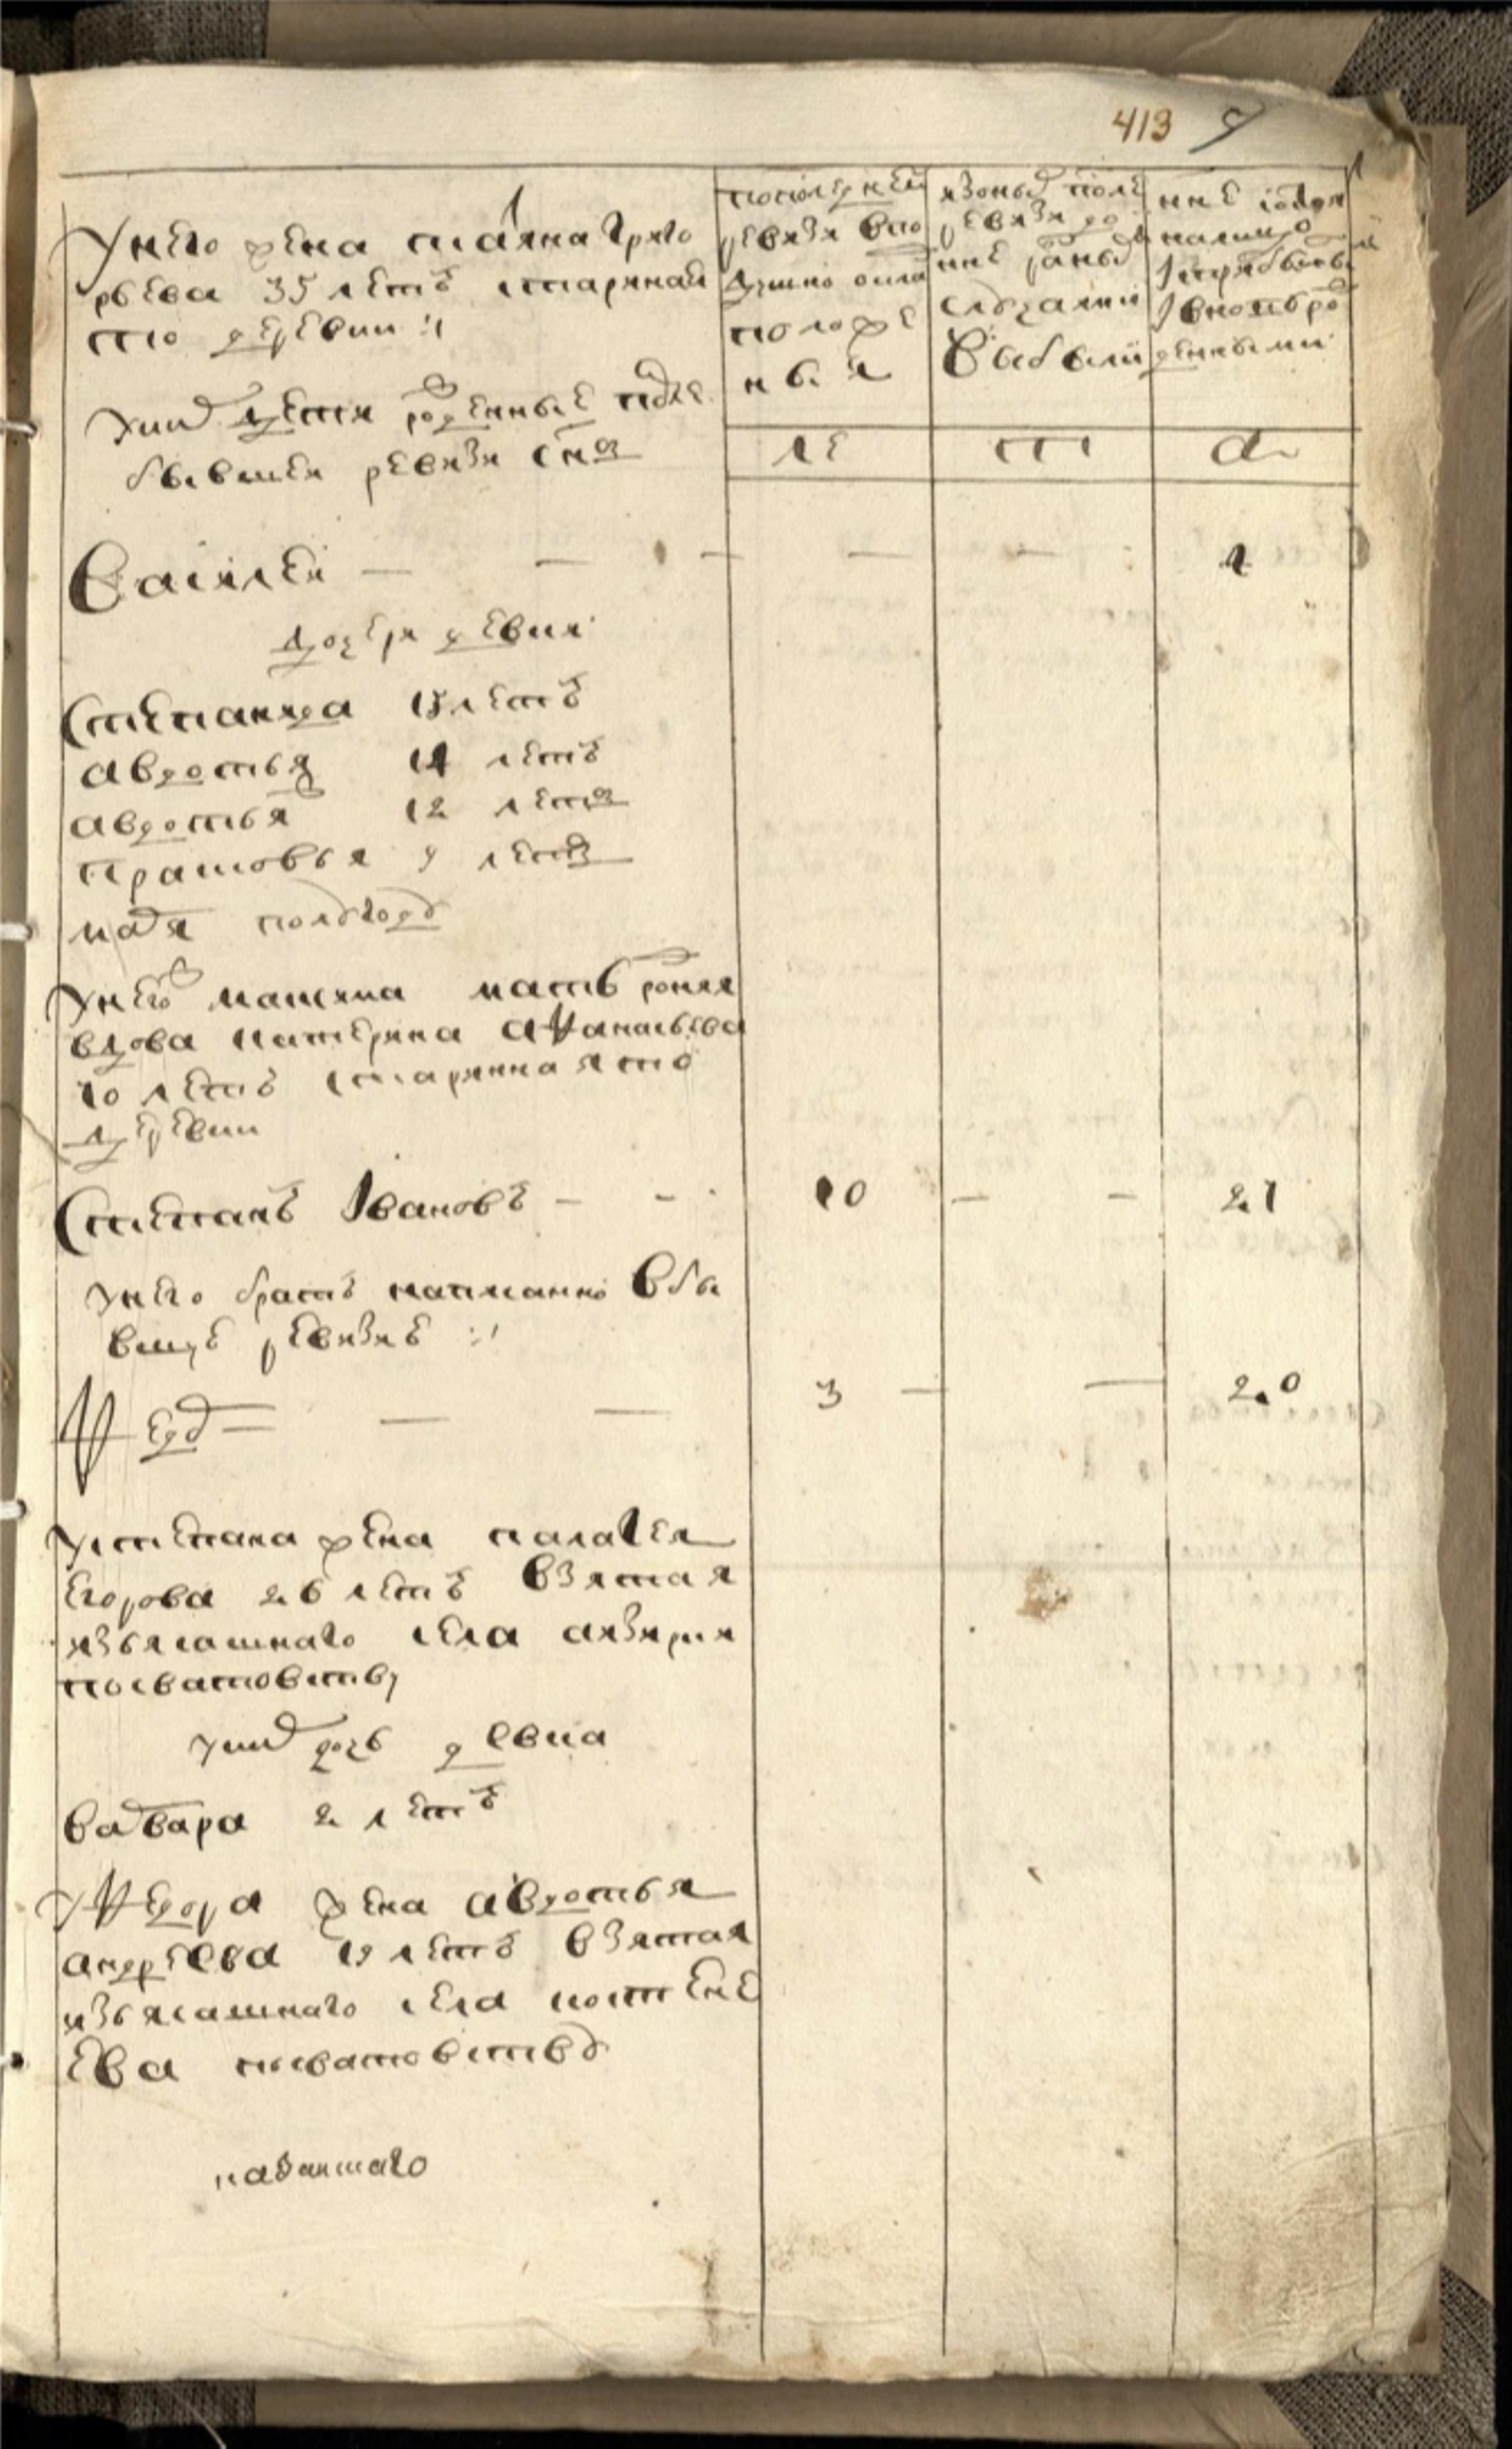 413 9
У него жена Улияна Григо
рьева 35 летъ старинная
тою деревни
У них дети рожденные после
бывшей ревизи снъ
последней
ревизи въ по
душно окла
положе
ныя
изоных после
ревизи до
ыне разных
слꙋчаии
выбыли
ныне годом
налицо
с прибылы
и вновь ро
жденными
ле
т
а
Василей — — — — 1
дочери девки
Степанида 15 летъ
Авдотья 14 летъ
Авдотья 12 летъ
Прасковья 9 летъ
полꙋгодꙋ
У него мачиха мать родная
вдова Катерина Афанасьева
70 летъ стариннаятой
деревни
Степанъ Ивановъ — — 10 — — 21
У него братъ написанной въ бы
вшую ревизию
Федоръ — — 3 — — 20
У Степана жена Палагея
Егорова 26 летъ взятая
изъ ясашнаго села
посватовствꙋ
У них дочь девка
Варвара 2 летъ
У Федора жена Авдотья
Андреева 19 летъ взятая
изъ ясашнаго села Костене
ева посватовствꙋ